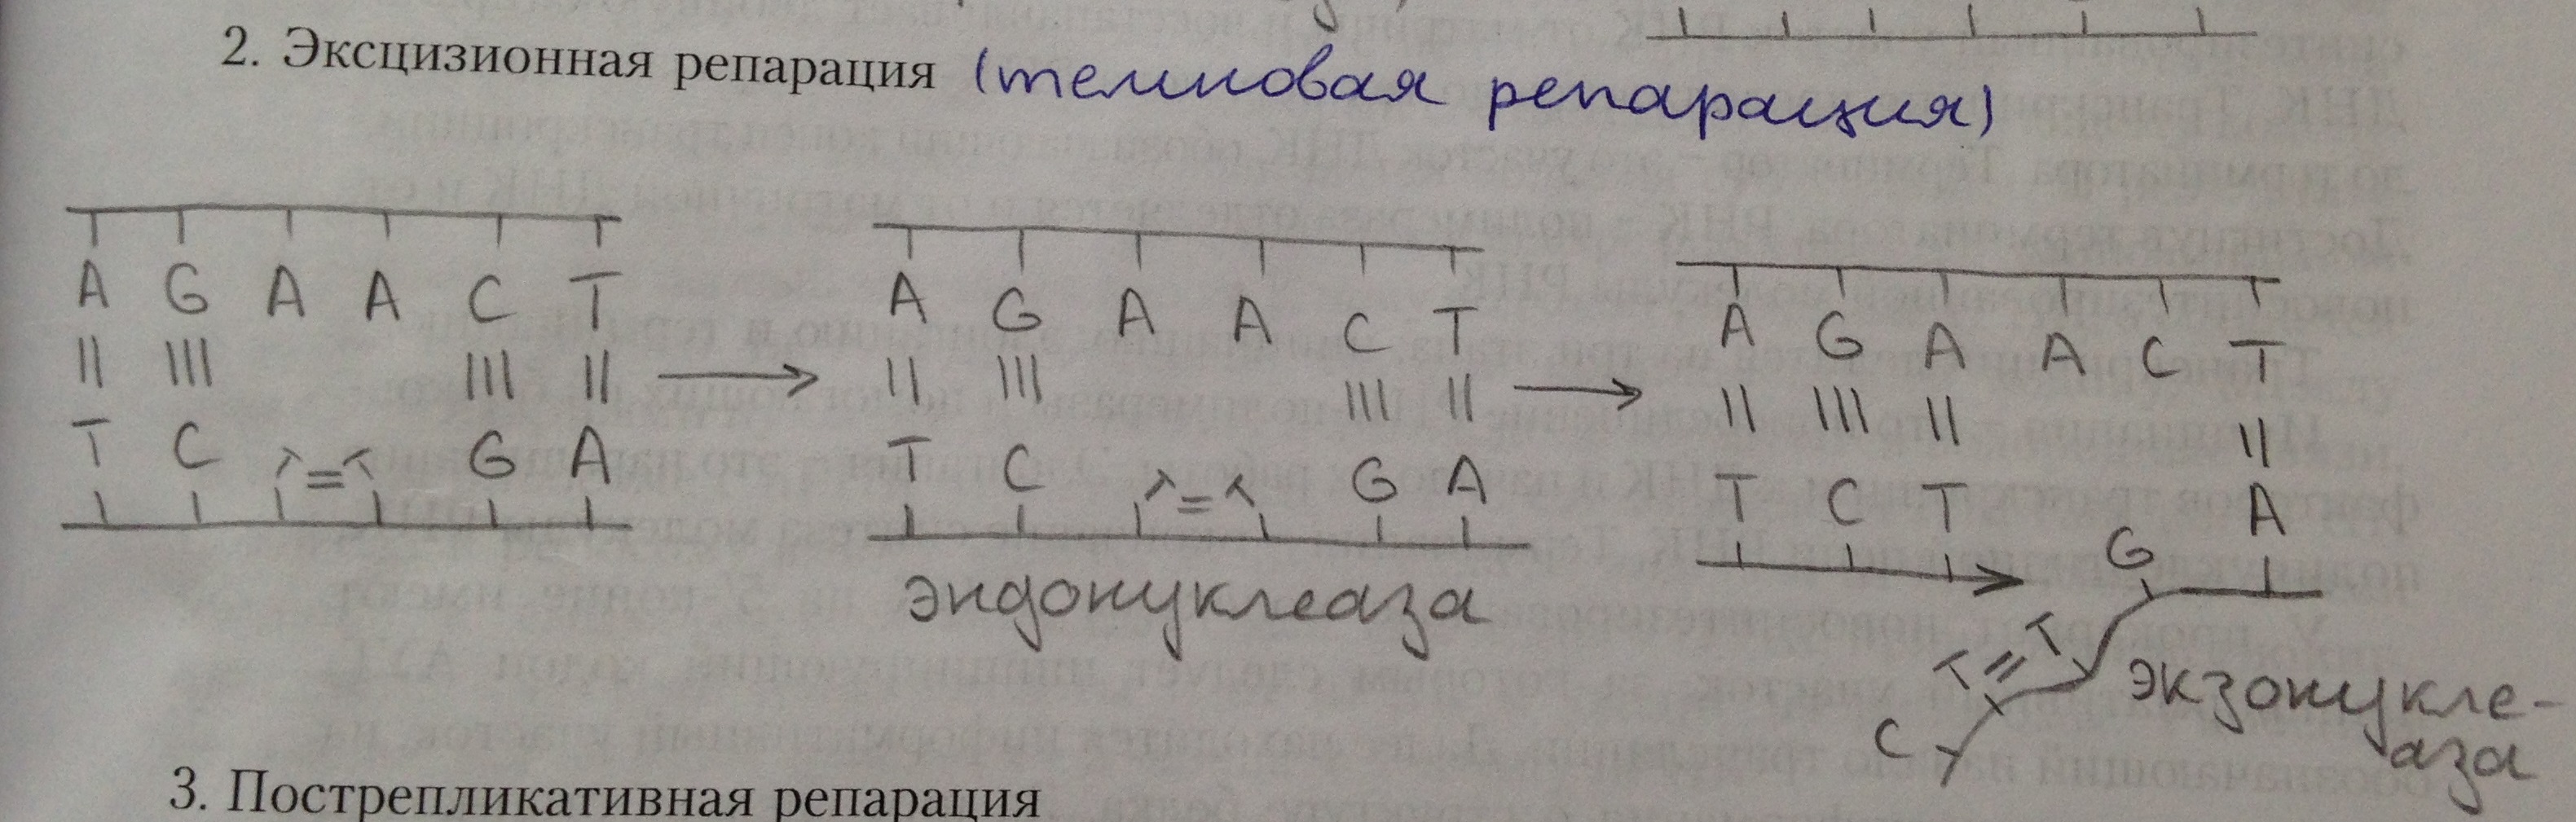 2. Эксцизионная репарация (темновая репарация)
A G A A C T
T C T=T G A
A G A A C T
T C T=T G A
эндонуклеаза
A G A A C T
T C T G A
T=T
C
экзонукле-
аза
3. Пострепликативная репарация